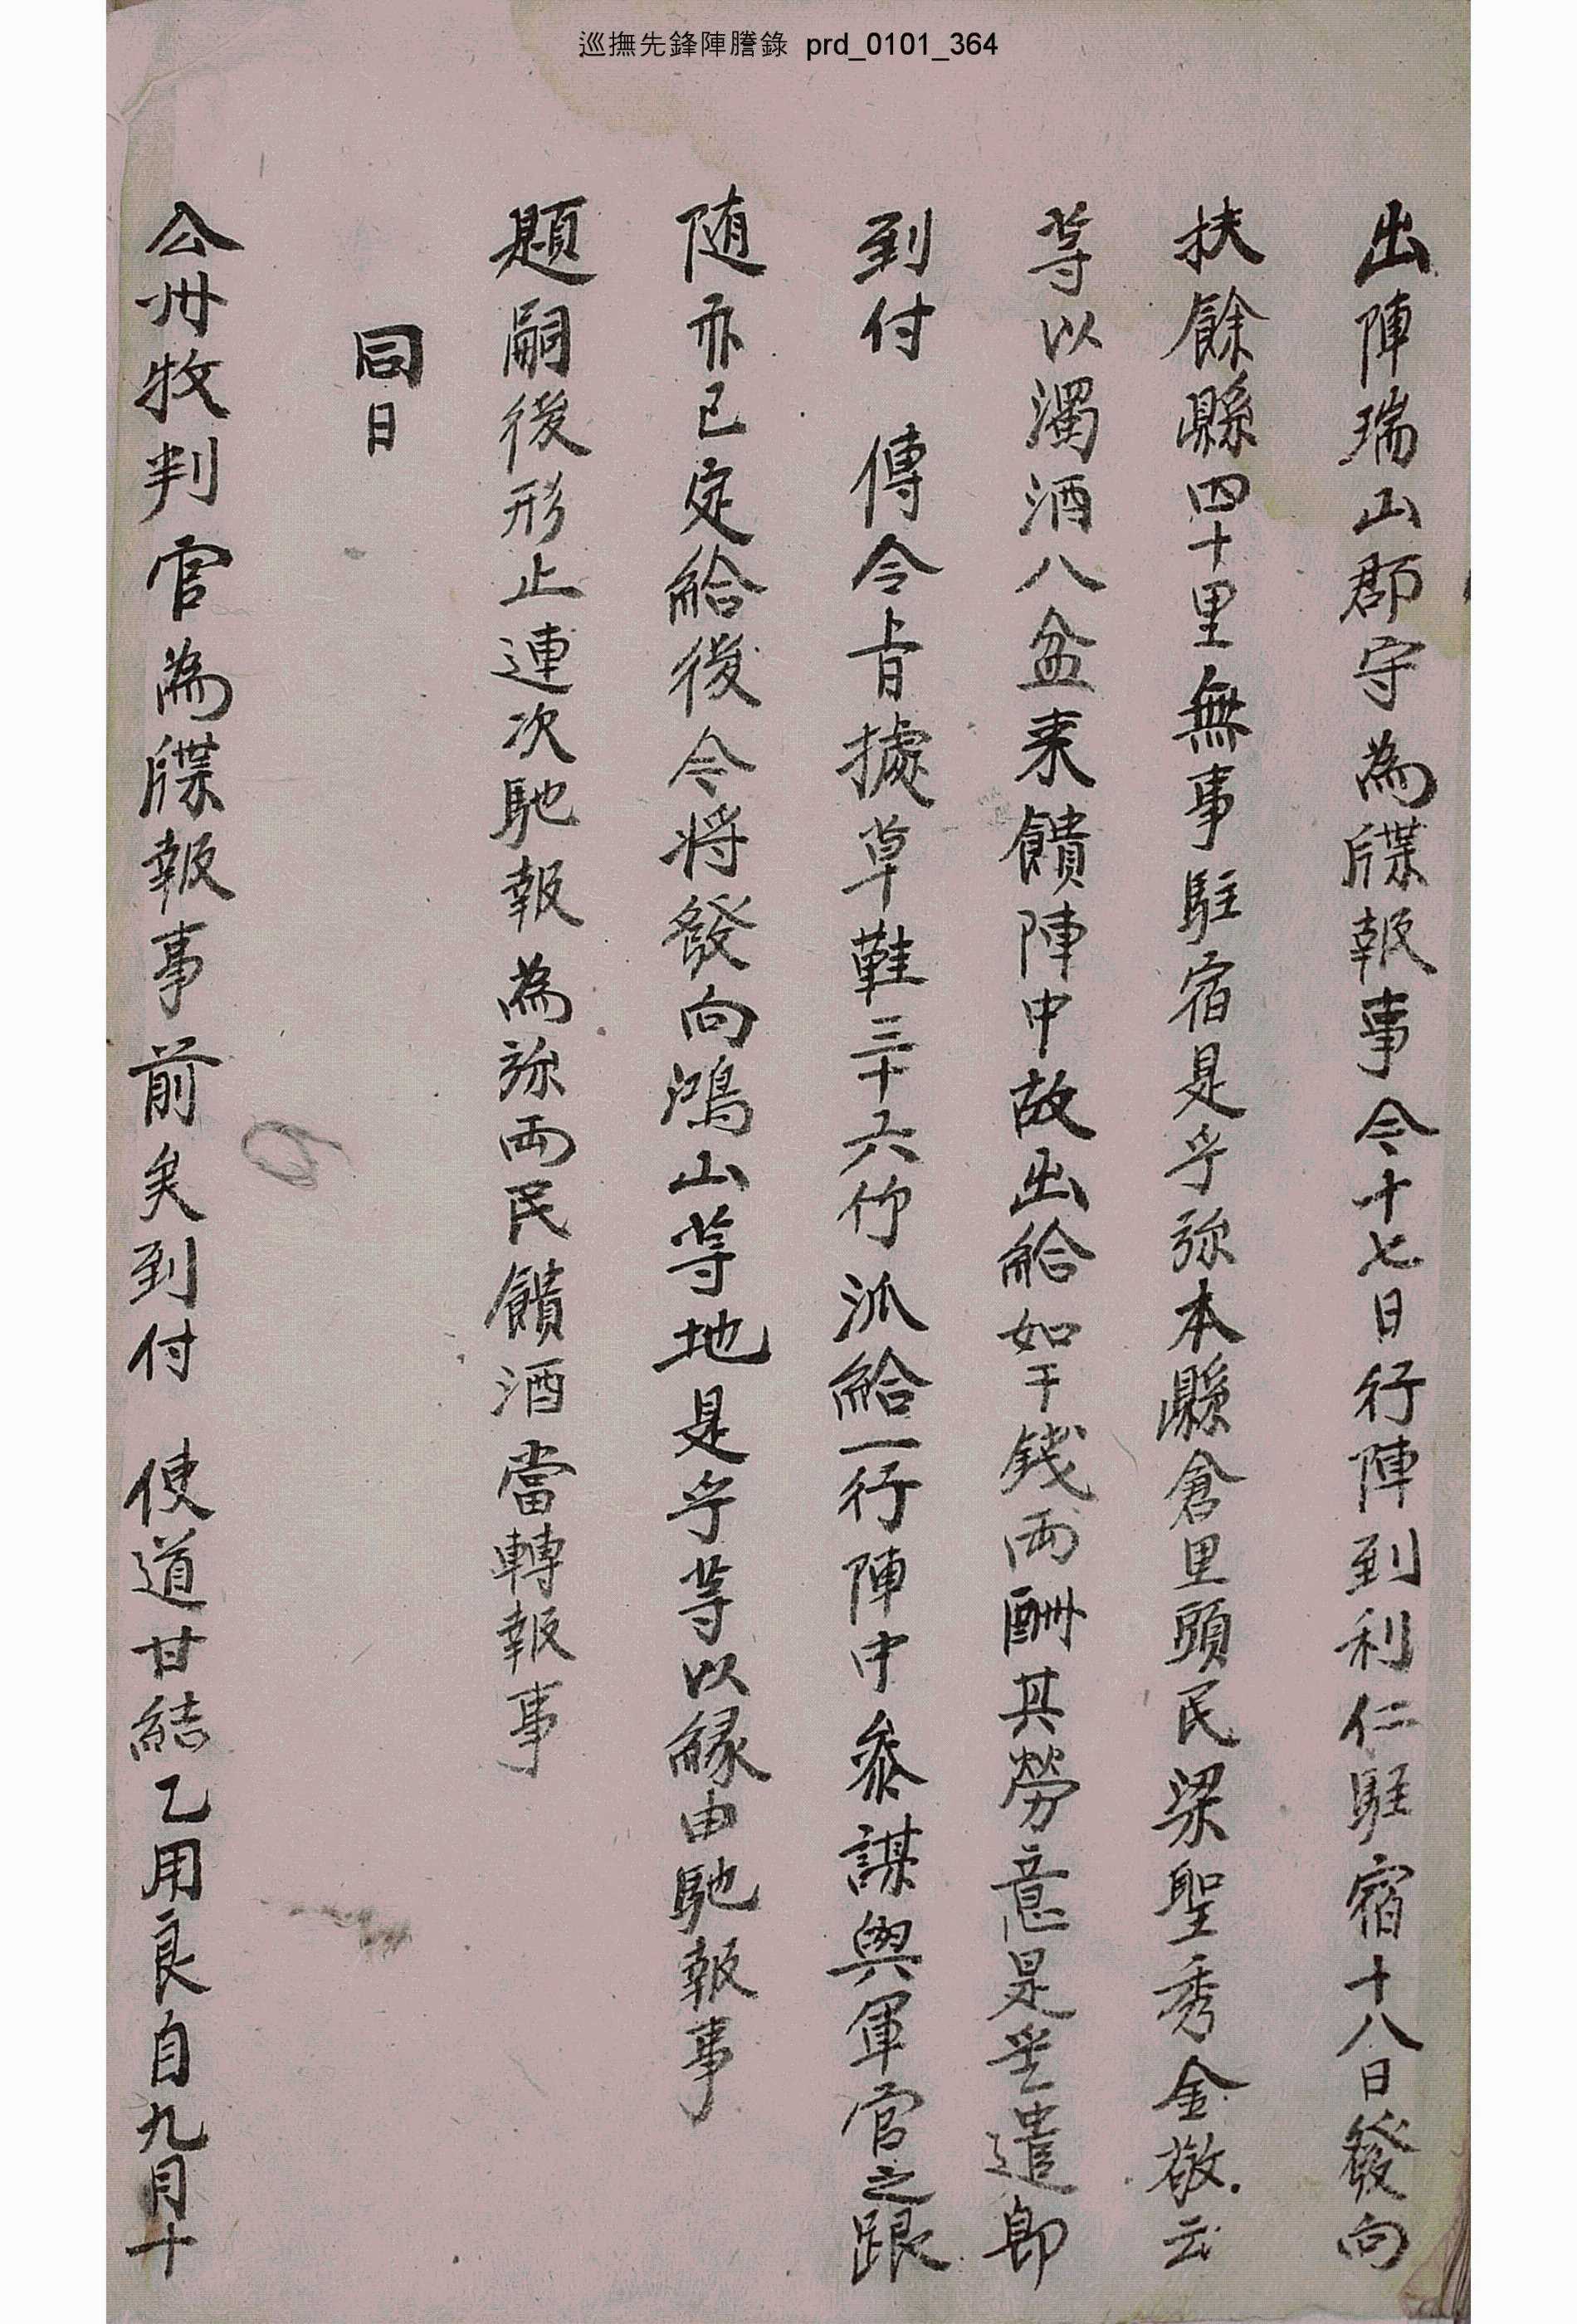 巡撫先鋒陣謄錄 prd_0101_364
出陣瑞山郡守為牒報事今十七日行陣到利仁駐宿十八日發向
扶餘縣四十里無事駐宿是乎弥本縣倉里頭民梁聖秀金敬云
等以濁酒八盆来饋陣中故出給如干錢両酬其勞意是乎遣卽
到付 傳令旨據草鞋三十六竹派給一行陣中參謀與軍官之跟
随亦已定給後今将發向鴻山等地是乎等以緣由馳報事
題嗣後形止連次馳報為弥両民饋酒當轉報事
同日
公州牧判官為牒報事前矣到付 使道甘結乙用良自九月十